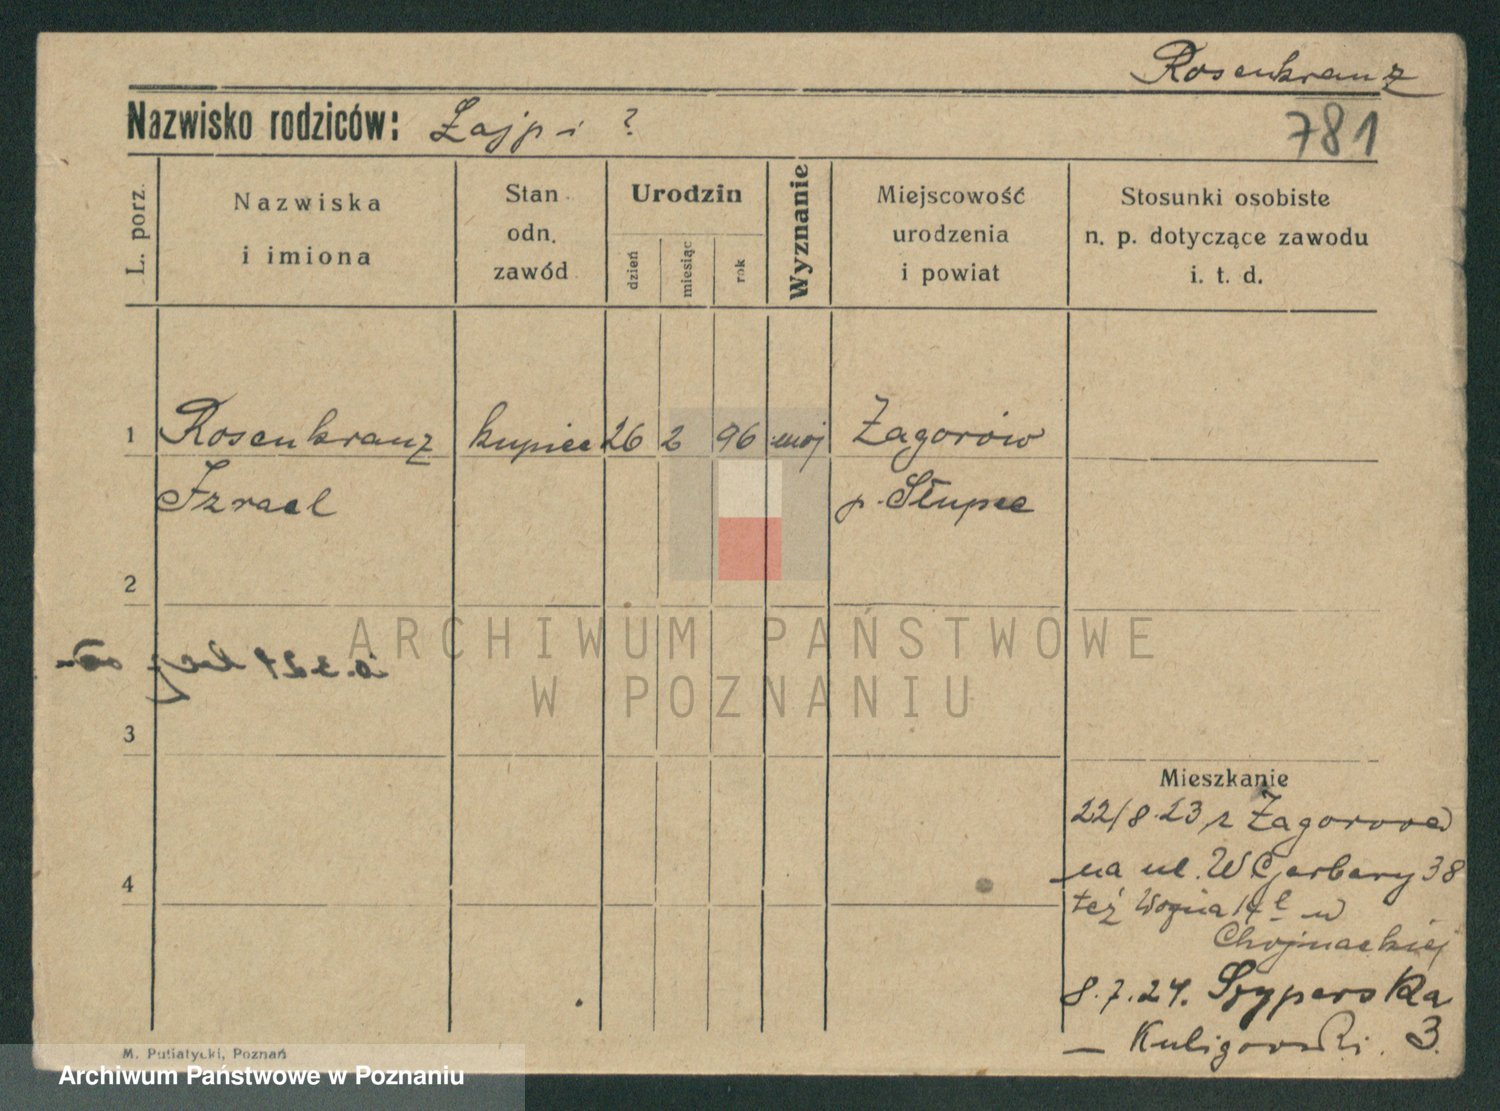 Rosenkranz
Nazwisko rodziców: Łajpi ?
781
L. porz.
Nazwiska
i imiona
Stan
odn.
zawód
Urodzin
dzień
miesiąc
rok
Wyznanie
Miejscowość
urodzenia
i powiat
Stosunki osobiste
n. p. dotyczące zawodu
i. t. d.
1 Rosenkranz kupiec 26 2 96 moj Zagorów
Izrael p. Słupca
2
ARCHIWUM PAŃSTWOWE
W POZNANIU
3
Mieszkanie
22/8.23 z Zagorowa
na ul. W Garbary 38
4
też Woźna 14 u
Chojnackiej
8.7.24. Szyperska
— Kuligowski. 3.
M. Putiatycki, Poznań
Archiwum Państwowe w Poznaniu